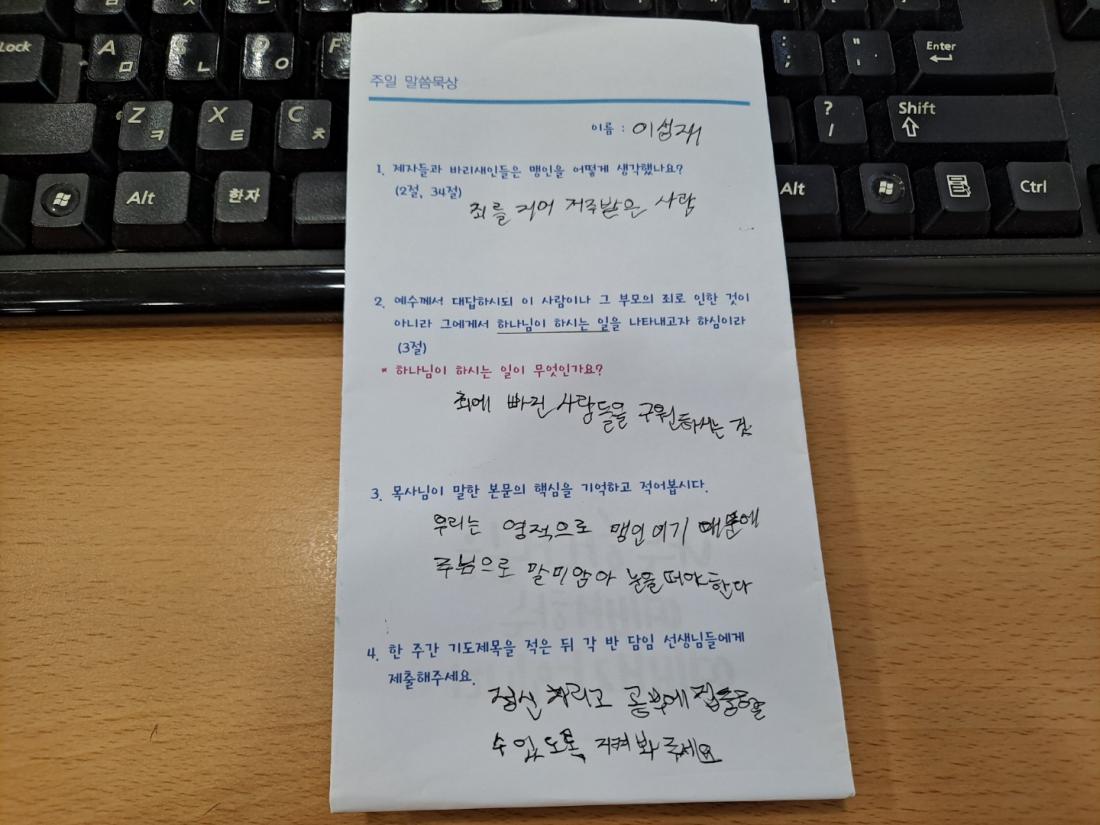 Lock
A ㅁ
S ㄴ
D ㅇ
F
: ;
" '
Enter
Z ㅋ
X ㅌ
C ㅊ
? /
Shift
Alt
한자
Alt
Ctrl
주일 말씀묵상
이름 : 이섭재
1. 제자들과 바리새인들은 맹인을 어떻게 생각했나요?
(2절, 34절)
죄를 지어 저주받은 사람
2. 예수께서 대답하시되 이 사람이나 그 부모의 죄로 인한 것이
아니라 그에게서 하나님이 하시는 일을 나타내고자 하심이라
(3절)
* 하나님이 하시는 일이 무엇인가요?
죄에 빠진 사람들을 구원하시는 것
3. 목사님이 말한 본문의 핵심을 기억하고 적어봅시다.
우리는 영적으로 맹인이기 때문에
주님으로 말미암아 눈을 떠야한다
4. 한 주간 기도제목을 적은 뒤 각 반 담임 선생님들에게
제출해주세요.
정신 차리고 공부에 집중할
수 있도록 지켜봐 주세요